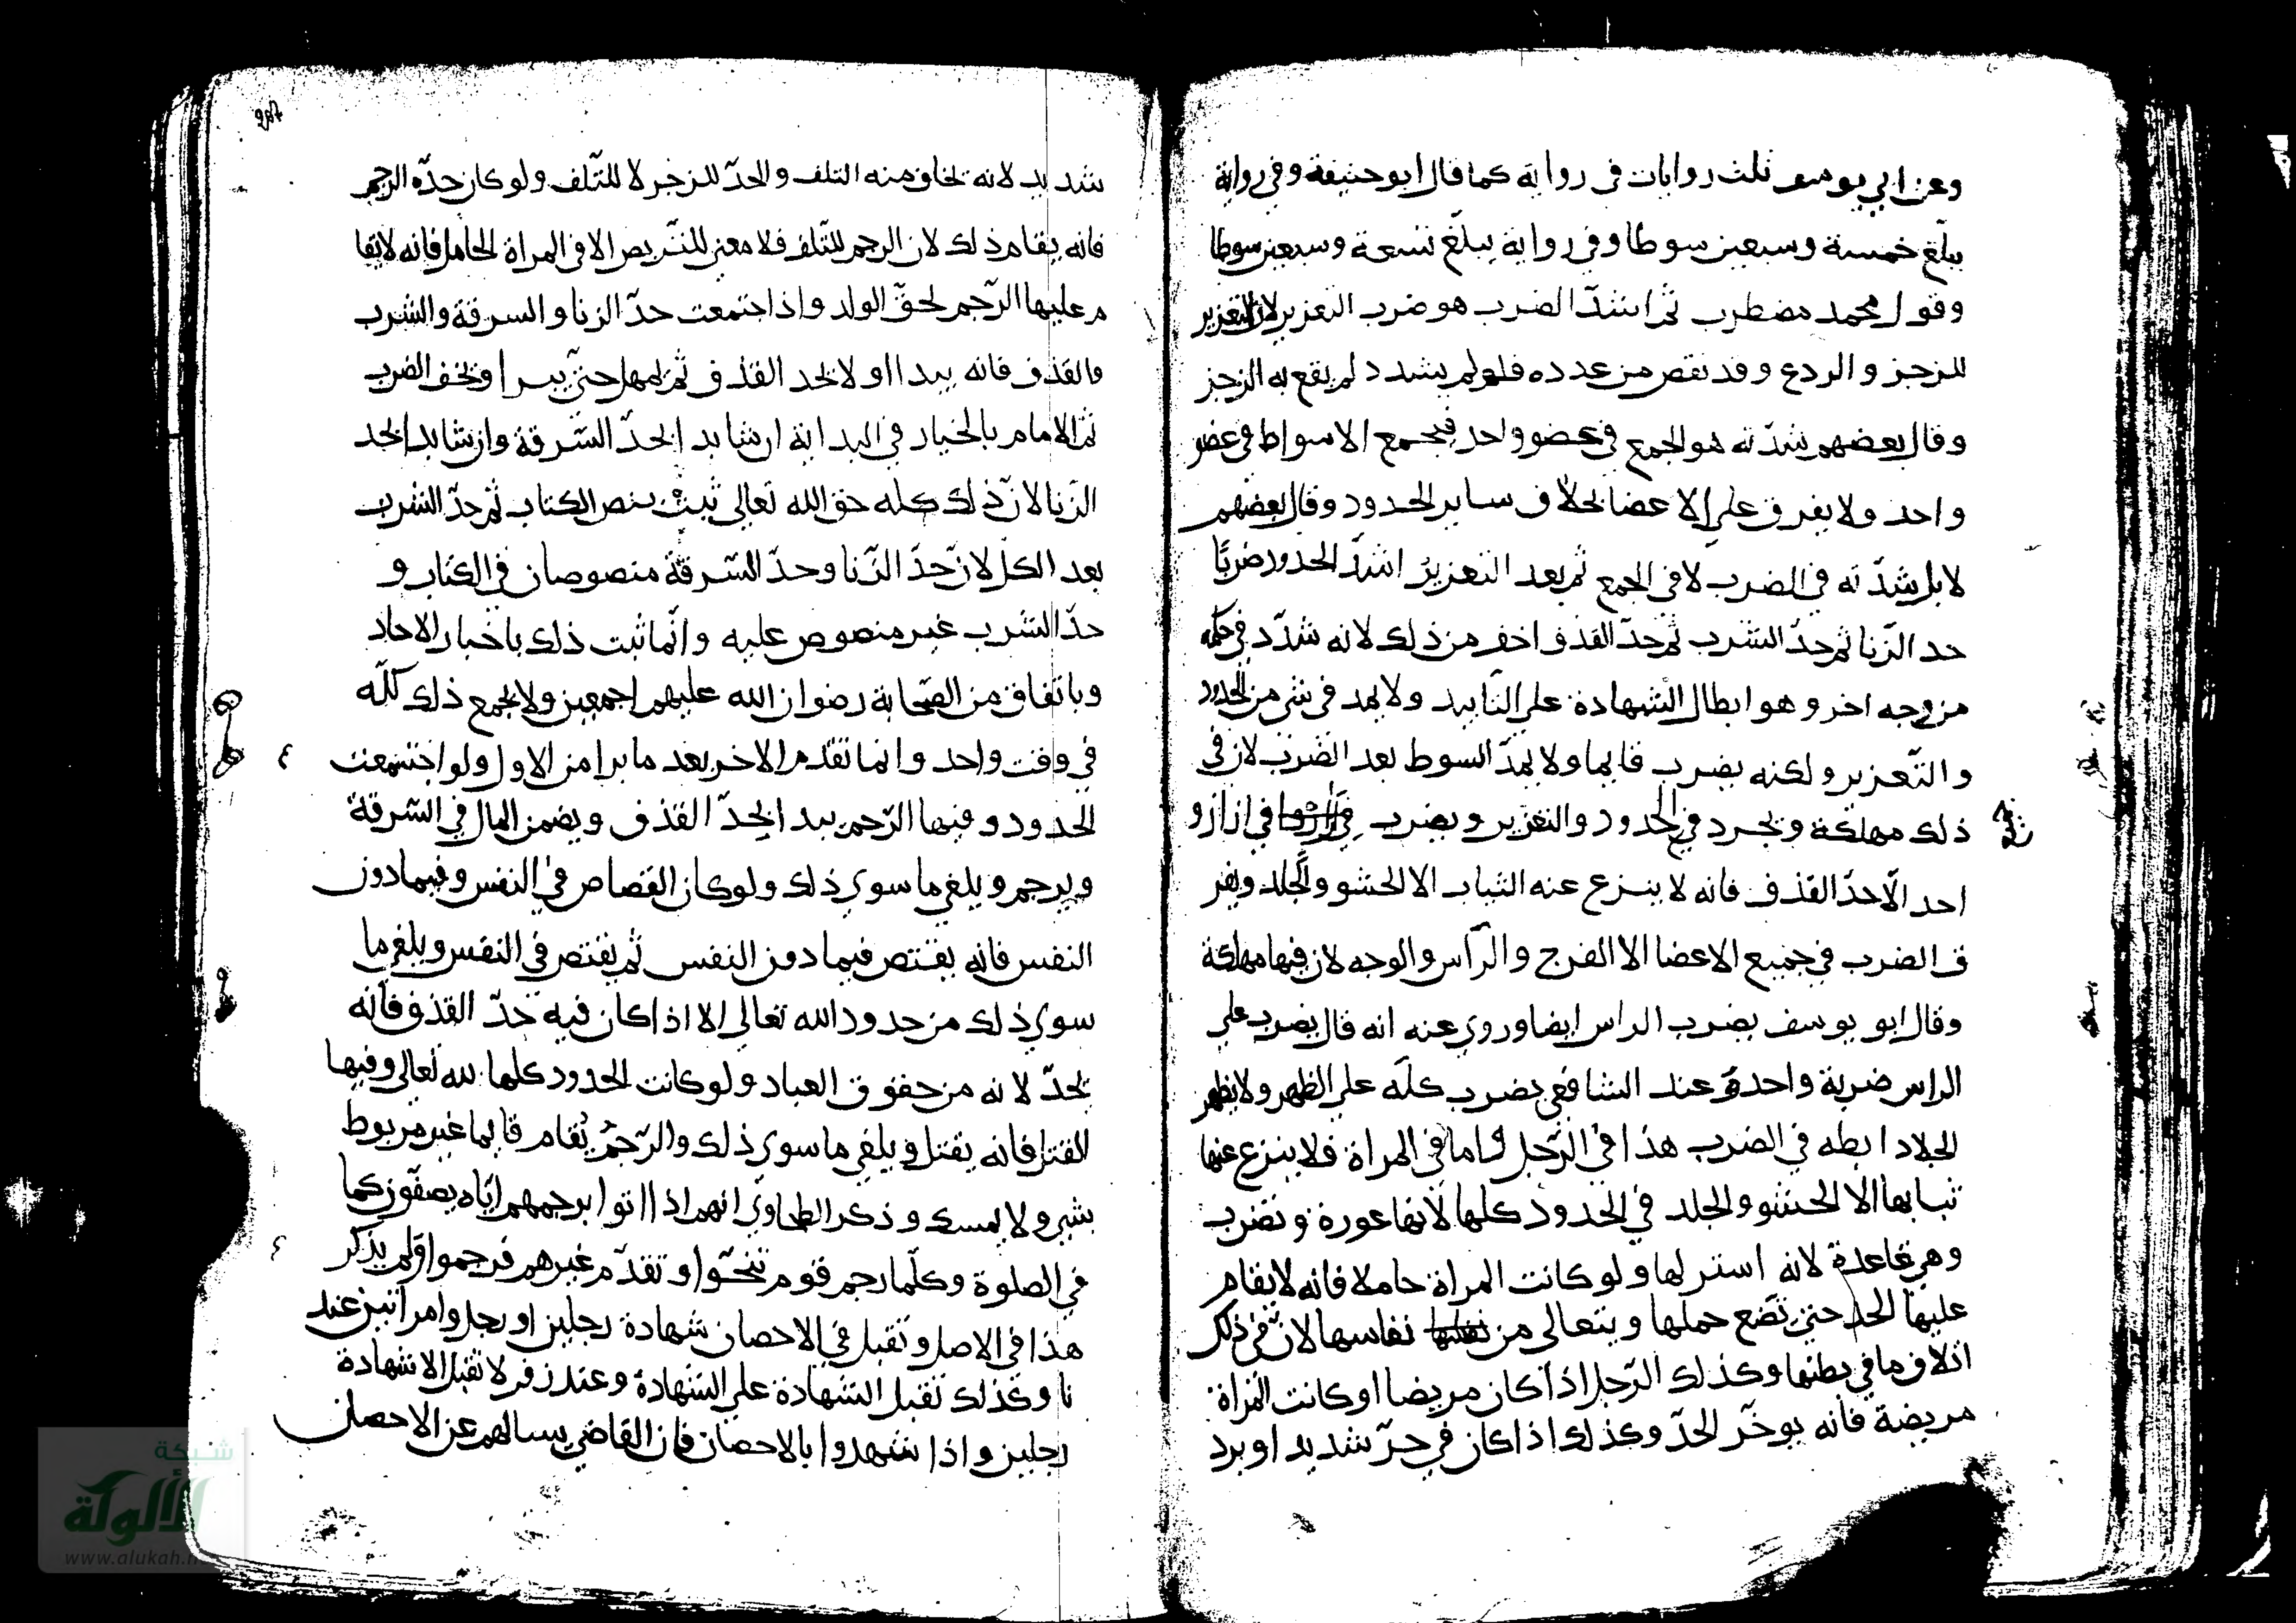 وعن ابي يوسف ثلث روايات في رواية كما قال ابو حنيفة وفي رواية
يبلغ خمسة وسبعين سوطا وفي رواية يبلغ تسعة وسبعين سوطا
وقول محمد مضطرب ثم اشدّ الضرب هو ضرب التعزير لان التعزير
للزجر والردع وقد نقص من عدده فلو لم يشدد لم يقع به الزجر
وقال بعضهم شدّته هو الجمع في عضو واحد فيجمع الاسواط في عضو
واحد ولا يفرق على الاعضا بخلاف ساير الحدود وقال بعضهم
لا بل شدّته في الضرب لا في الجمع ثم بعد التعزير اشدّ الحدود ضربًا
حد الزّنا ثم حدّ الشرب ثم حدّ القذف اخف من ذلك لانه شدّد في حكمه
من وجه اخر وهو ابطال الشهادة على التّابيد ولا يمد في شي من الحدود
والتّعزير ولكنه يضرب قايما ولا يمدّ السوط بعد الضرب لان في
ذلك مهلكة ويجرد في الحدود والتعزير ويضرب في ازار و
احد الّا حدّ القذف فانه لا ينزع عنه الثياب الا الحشو والجلد ويفر
ق الضرب في جميع الاعضا الا الفرج والرّأس والوجه لان فيها مهلكة
وقال ابو يوسف يضرب الراس ايضا وروي عنه انه قال يضرب على
الراس ضربة واحدة وعند الشافعي يضرب كلّه على الظهر ولا يظهر
الجلاد ابطه في الضرب هذا في الرّجل واما في المراة فلا ينزع عنها
ثيابها الا الحشو والجلد في الحدود كلها لانها عورة وتضرب
وهي قاعدة لانه استر لها ولو كانت المراة حاملا فانه لا يقام
عليها الحد حتى تضع حملها ويتعالى من نفاسها لانّ في ذلك
اتلاف ما في بطنها وكذلك الرّجل اذا كان مريضا او كانت المراة
مريضة فانه يوخّر الحدّ وكذلك اذا كان في حرّ شديد او برد
شديد لانه يخاف منه التلف والحدّ للزجر لا للتّلف ولو كان حدّه الرجم
فانه يقام ذلك لان الرجم للتّلف فلا معنى للتربص الا في المراة الحامل فانه لا يقا
م عليها الرّجم لحقّ الولد واذا اجتمعت حدّ الزنا والسرقة والشرب
والقذف فانه يبدا اولا بحد القذف ثم يمهل حتى يبرا ويخف الضرب
ثم الامام بالخيار في البداية ان شا بدا بحدّ السّرقة وان شا بدا بحد
الزّنا لانّ ذلك كله حق الله تعالى ثبت بنص الكتاب ثم حدّ الشرب
بعد الكل لانّ حدّ الزّنا وحدّ السّرقة منصوصان في الكتاب و
حدّ الشرب غير منصوص عليه وانّما ثبت ذلك باخبار الاحاد
وباتفاق من الصّحابة رضوان الله عليهم اجمعين ولا يجمع ذلك كلّه
في وقت واحد وانما تقدّم الاخر بعد ما برا من الاول ولو اجتمعت
الحدود وفيها الرّجم يبدا بحدّ القذف ويضمن المال في السّرقة
ويرجم ويلغي ما سوى ذلك ولو كان القصاص في النفس وفيما دون
النفس فانه يقتص فيما دون النفس ثم يقتص في النفس ويلغي ما
سوى ذلك من حدود الله تعالى الا اذا كان فيه حدّ القذف فانّه
يحدّ لانه من حقوق العباد ولو كانت الحدود كلها لله تعالى وفيها
القتل فانه يقتل ويلغي ما سوى ذلك والرّجمُ يُقام قايما غير مربوط
بشي ولا يمسك وذكر الطحاوي انهم اذا اتوا برجمهم ايّاه يصفّون كما
في الصلوة وكلّما رجم قوم تنحّوا وتقدّم غيرهم فرجموا ولم يذكر
هذا في الاصل وتقبل في الاحصان شهادة رجلين او رجل وامراتين عند
نا وكذلك تقبل الشهادة على الشهادة وعند زفر لا تقبل الا شهادة
رجلين واذا شهدوا بالاحصان فان القاضي يسالهم عن الاحصان
شبكة
الألوكة